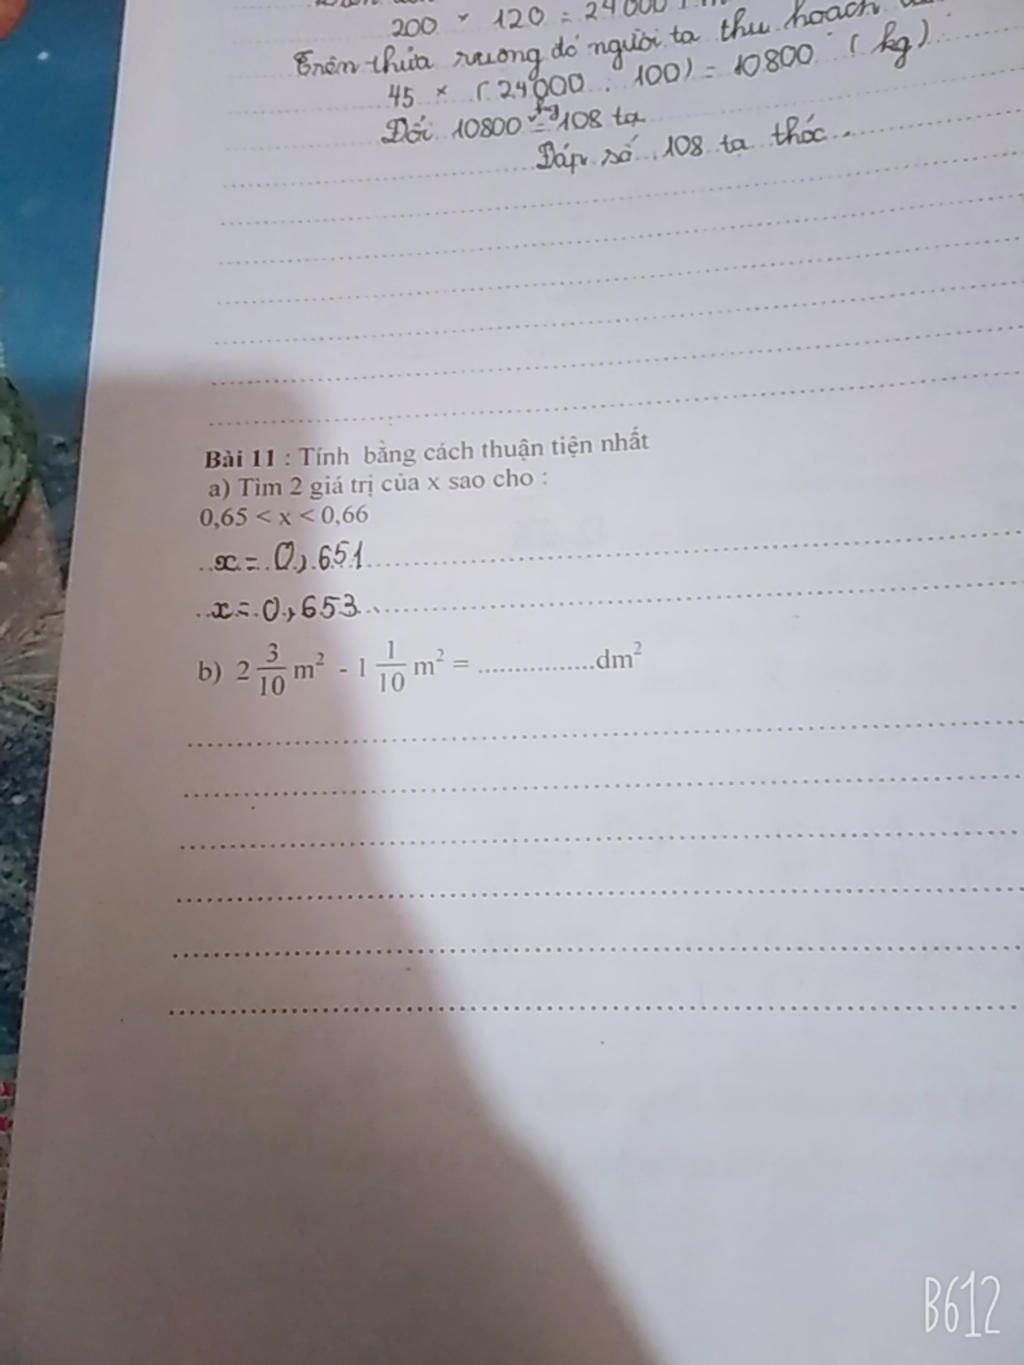 200 × 120 = 24000
Trên thửa ruộng đó người ta thu hoạch
45 × (24000 : 100) = 10800 (kg)
Đổi 10800 kg = 108 tạ
Đáp số 108 tạ thóc.
Bài 11 : Tính bằng cách thuận tiện nhất
a) Tìm 2 giá trị của x sao cho :
0,65 < x < 0,66
x = 0,651
x = 0,653
b) 2 3/10 m² - 1 1/10 m² = ................dm²
B612